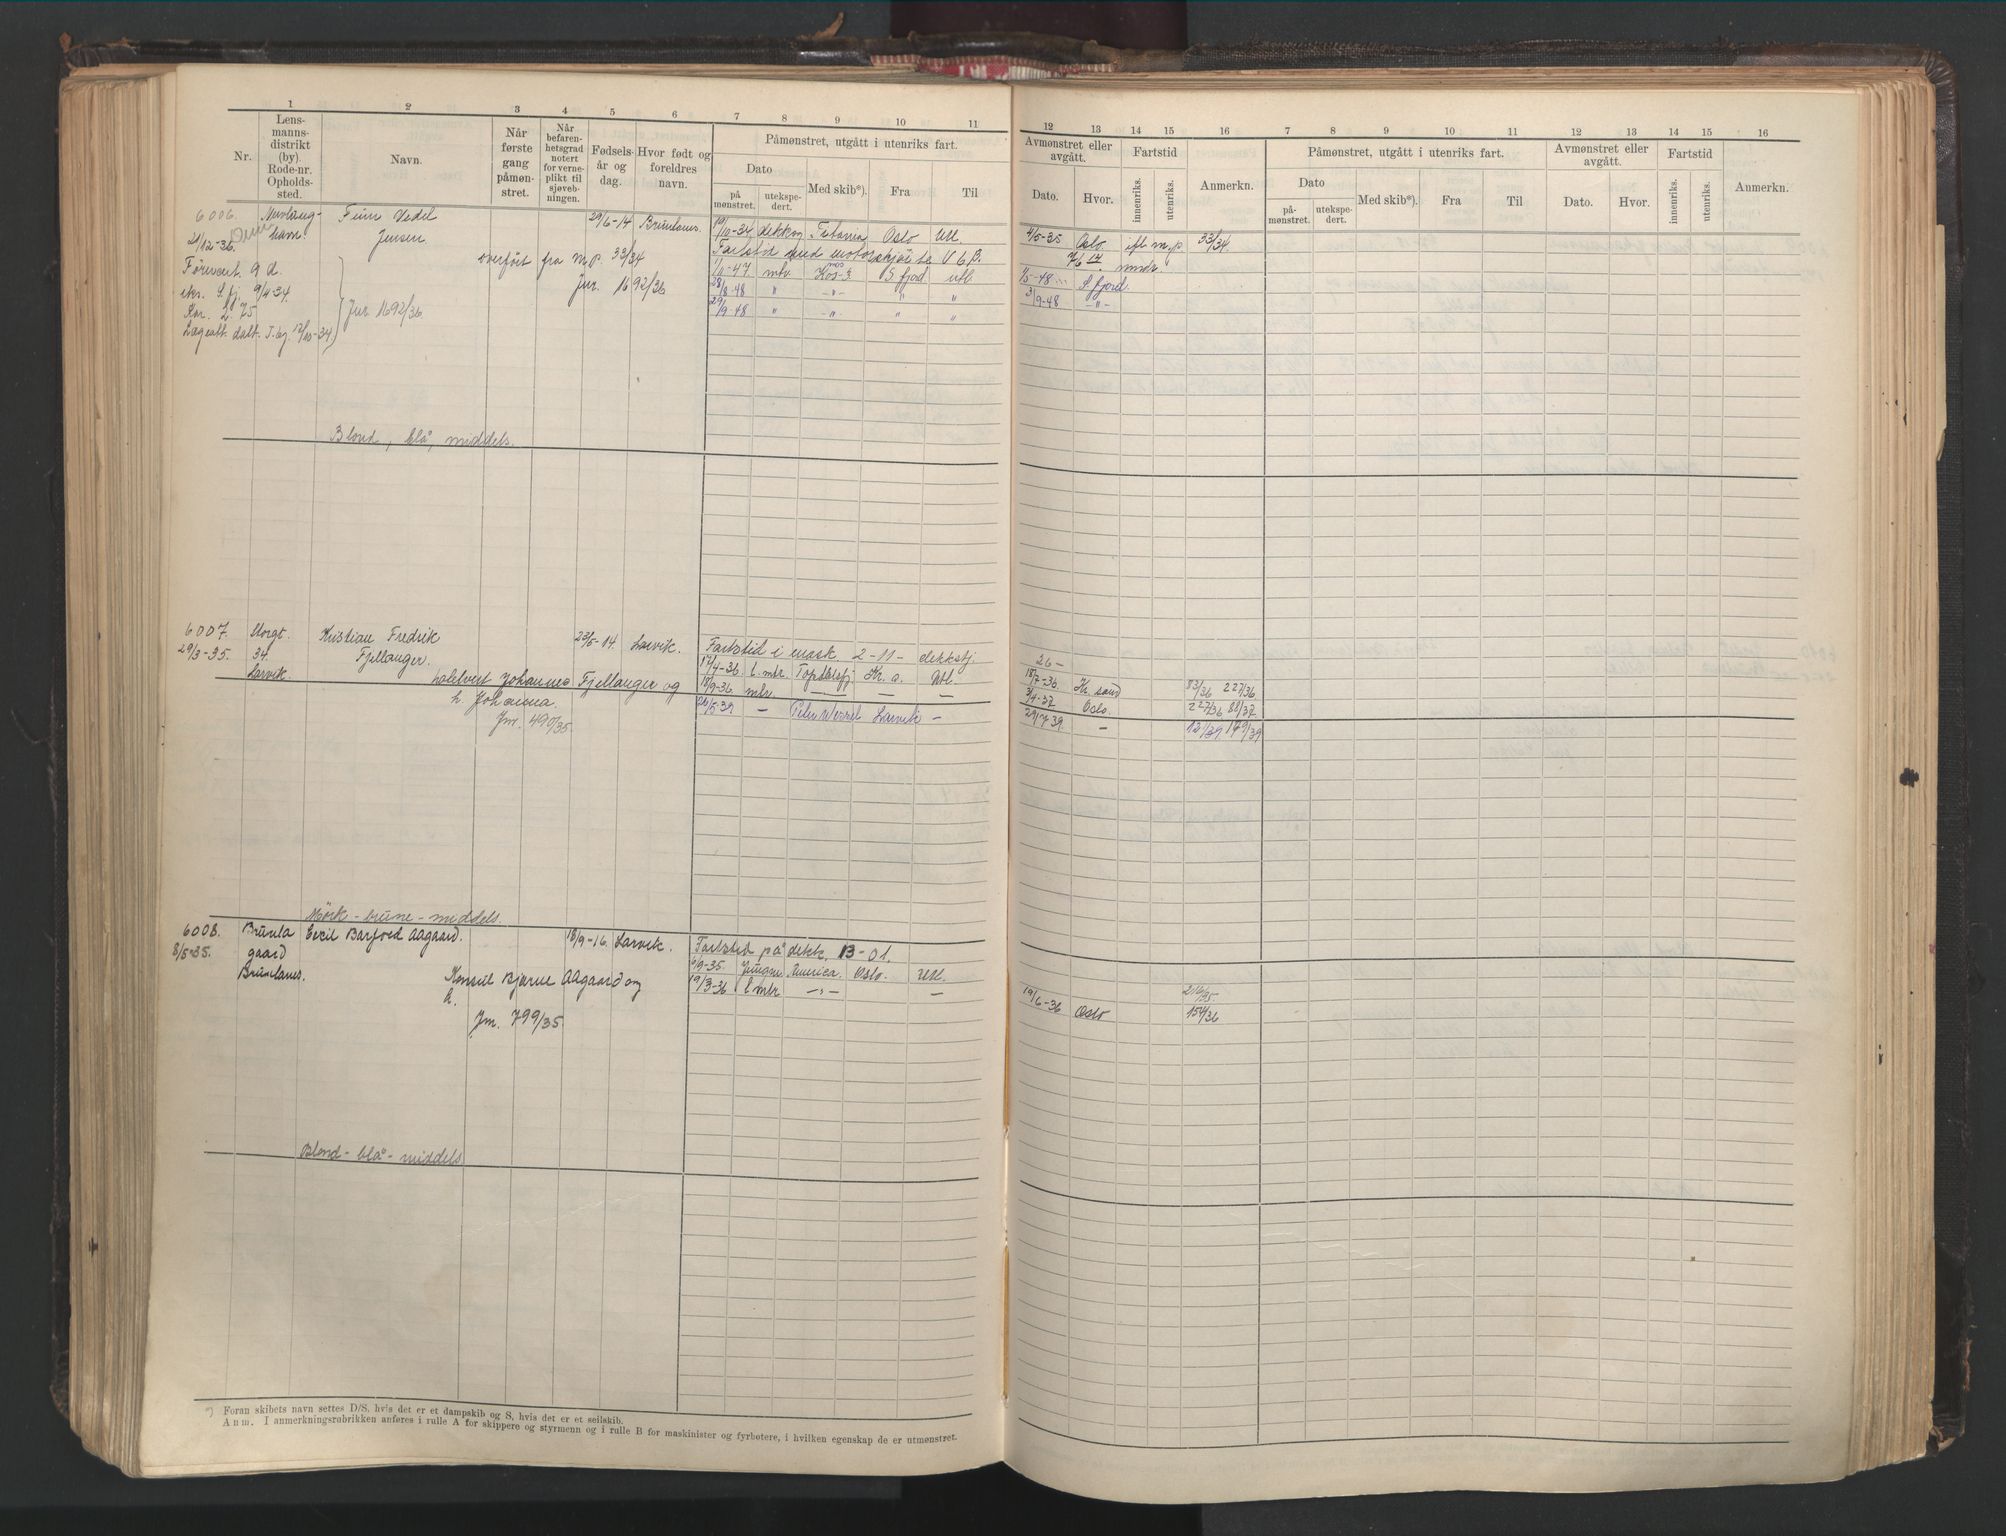 1 2 3 4 5 6 7 8 9 10 11
Nr.
Lens-
manns-
distrikt
(by)
Rode-nr.
Opholds-
sted.
Navn.
Når
første
gang
påmøn-
stret.
Når
befaren-
hetsgrad
notert
for verne-
plikt til
sjøveb-
ningen.
Fødsels-
år og
dag.
Hvor født og
foreldres
navn.
Påmønstret, utgått i utenriks fart.
Dato
på
mønstret.
utekspe-
dert.
Med skib*).
Fra
Til
6006.
21/12-36.
havn.
Finn Vedel
Jensen
29/6-14 Brunlanes.
overført fra m.p. 33/34
Jnr. 1692/36
eks. S.fj. 9/4 34.
Kar. 2.75
Jnr 1692/36
Lægeatt. dat.
19/10-34 dekksg Titania Oslo Utl.
Fartstid med
1/10-47 mtr. Kos 3 S fjord utl.
28/8.48 " -"- " "
29/9-48 " -"- " "
Blond, blå, middels.
6007.
29/3-35.
Storgt.
34.
Larvik.
Kristian Fredrik
Fjellanger.
23/5-14. Larvik.
Johannes Fjellanger og
h. Johanna.
Jnr. 490/35.
Fartstid i mask. 2-11- dekkstj.
17/4-36. l.mtr. Topdalsfj Kr.a. Utl.
18/9-36. mtr. — — —
26/5-39 — Peter Wessel Larvik —
Mørk - brune - middels.
6008.
8/5-35.
Brunla
gaard
Brunlanes.
Cecil Barfoed Aagaard.
18/9-16. Larvik.
Konsul Bjarne Aagaard og
h.
Jnr. 799/35.
Fartstid på dekk. B-01.
6/9-35. Jungm America. Oslo. Utl.
19/3-36 l mtr —"— —
Blond - blå - middels
*) Foran skibets navn settes D/S, hvis det er et dampskib og S, hvis det er et seilskib.
Anm. I anmerkningsrubrikken anføres i rulle A for skippere og styrmenn og i rulle B for maskinister og fyrbøtere, i hvilken egenskap de er utmønstret.
12 13 14 15 16 7 8 9 10 11 12 13 14 15 16
Avmønstret eller
avgått.
Dato. Hvor.
Fartstid
innenriks. utenriks.
Anmerkn.
Påmønstret, utgått i utenriks fart.
Dato
på-
mønstret.
utekspe-
dert.
Med skib*).
Fra
Til
Avmønstret eller
avgått.
Dato. Hvor.
Fartstid
innenriks. utenriks.
Anmerkn.
4/5-35 Oslo. ifl m.p 33/34.
mndr.
1/5-48 S fjord.
3/9-48 -"-
26 -
18/7-36. Kr. sand 83/36 227/36
3/4-37 Oslo. 227/36 88/37
29/7 39. — 121/39 179/39
216/35
19/6-36 Oslo 154/36